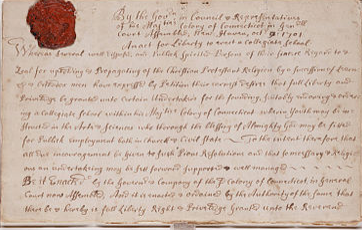 By the Govn in Council & Representatives
of his Majties Colony of Connecticut in Genrll
Court Assembled, New Haven, Octr 9: 1701
An act for Liberty to erect a Collegiate School
Whereas several well disposed and Publick Spirited Persons of their Sincere Regard to &
Zeal for upholding & Propagating of the Christian Protestant Religion by a succession of Learned
& Orthodox men have expressed by Petition their earnest desires that full Liberty and
Priviledge be granted unto Certain Undertakers for the founding, suitably endowing & ordering
a Collegiate School within his Majties Colony of Connecticut wherein Youth may be in
structed in the Arts & Sciences who through the blessing of Almighty God may be fitted
for Publick employment both in Church & Civil State To the intent therefore that
all due encouragement be given to such Pious Resolutions and that so necessary & Religi
ous an undertaking may be set forward Supported & well managed
Be it Enacted by the Governr & Company of the Colony of Connecticut in General
Court now Assembled, And it is enacted & ordained by the Authority of the same that
there be & hereby is full Liberty Right & Priviledge Granted unto the Reverend